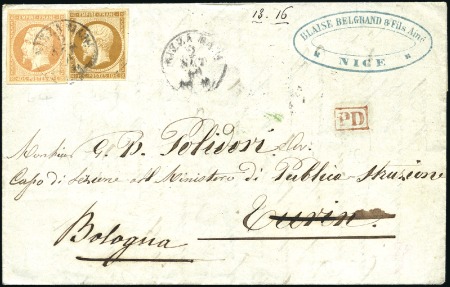 EMPIRE FRANC. EMPIRE FRANC.
NIZZA MARE
18.16
BLAISE BELGRAND & Fils Ainé
NICE
PD
Monsieur G. B. Polidori
Capo di Sezione al Ministero di Publica Istruzione
Turin
Bologna